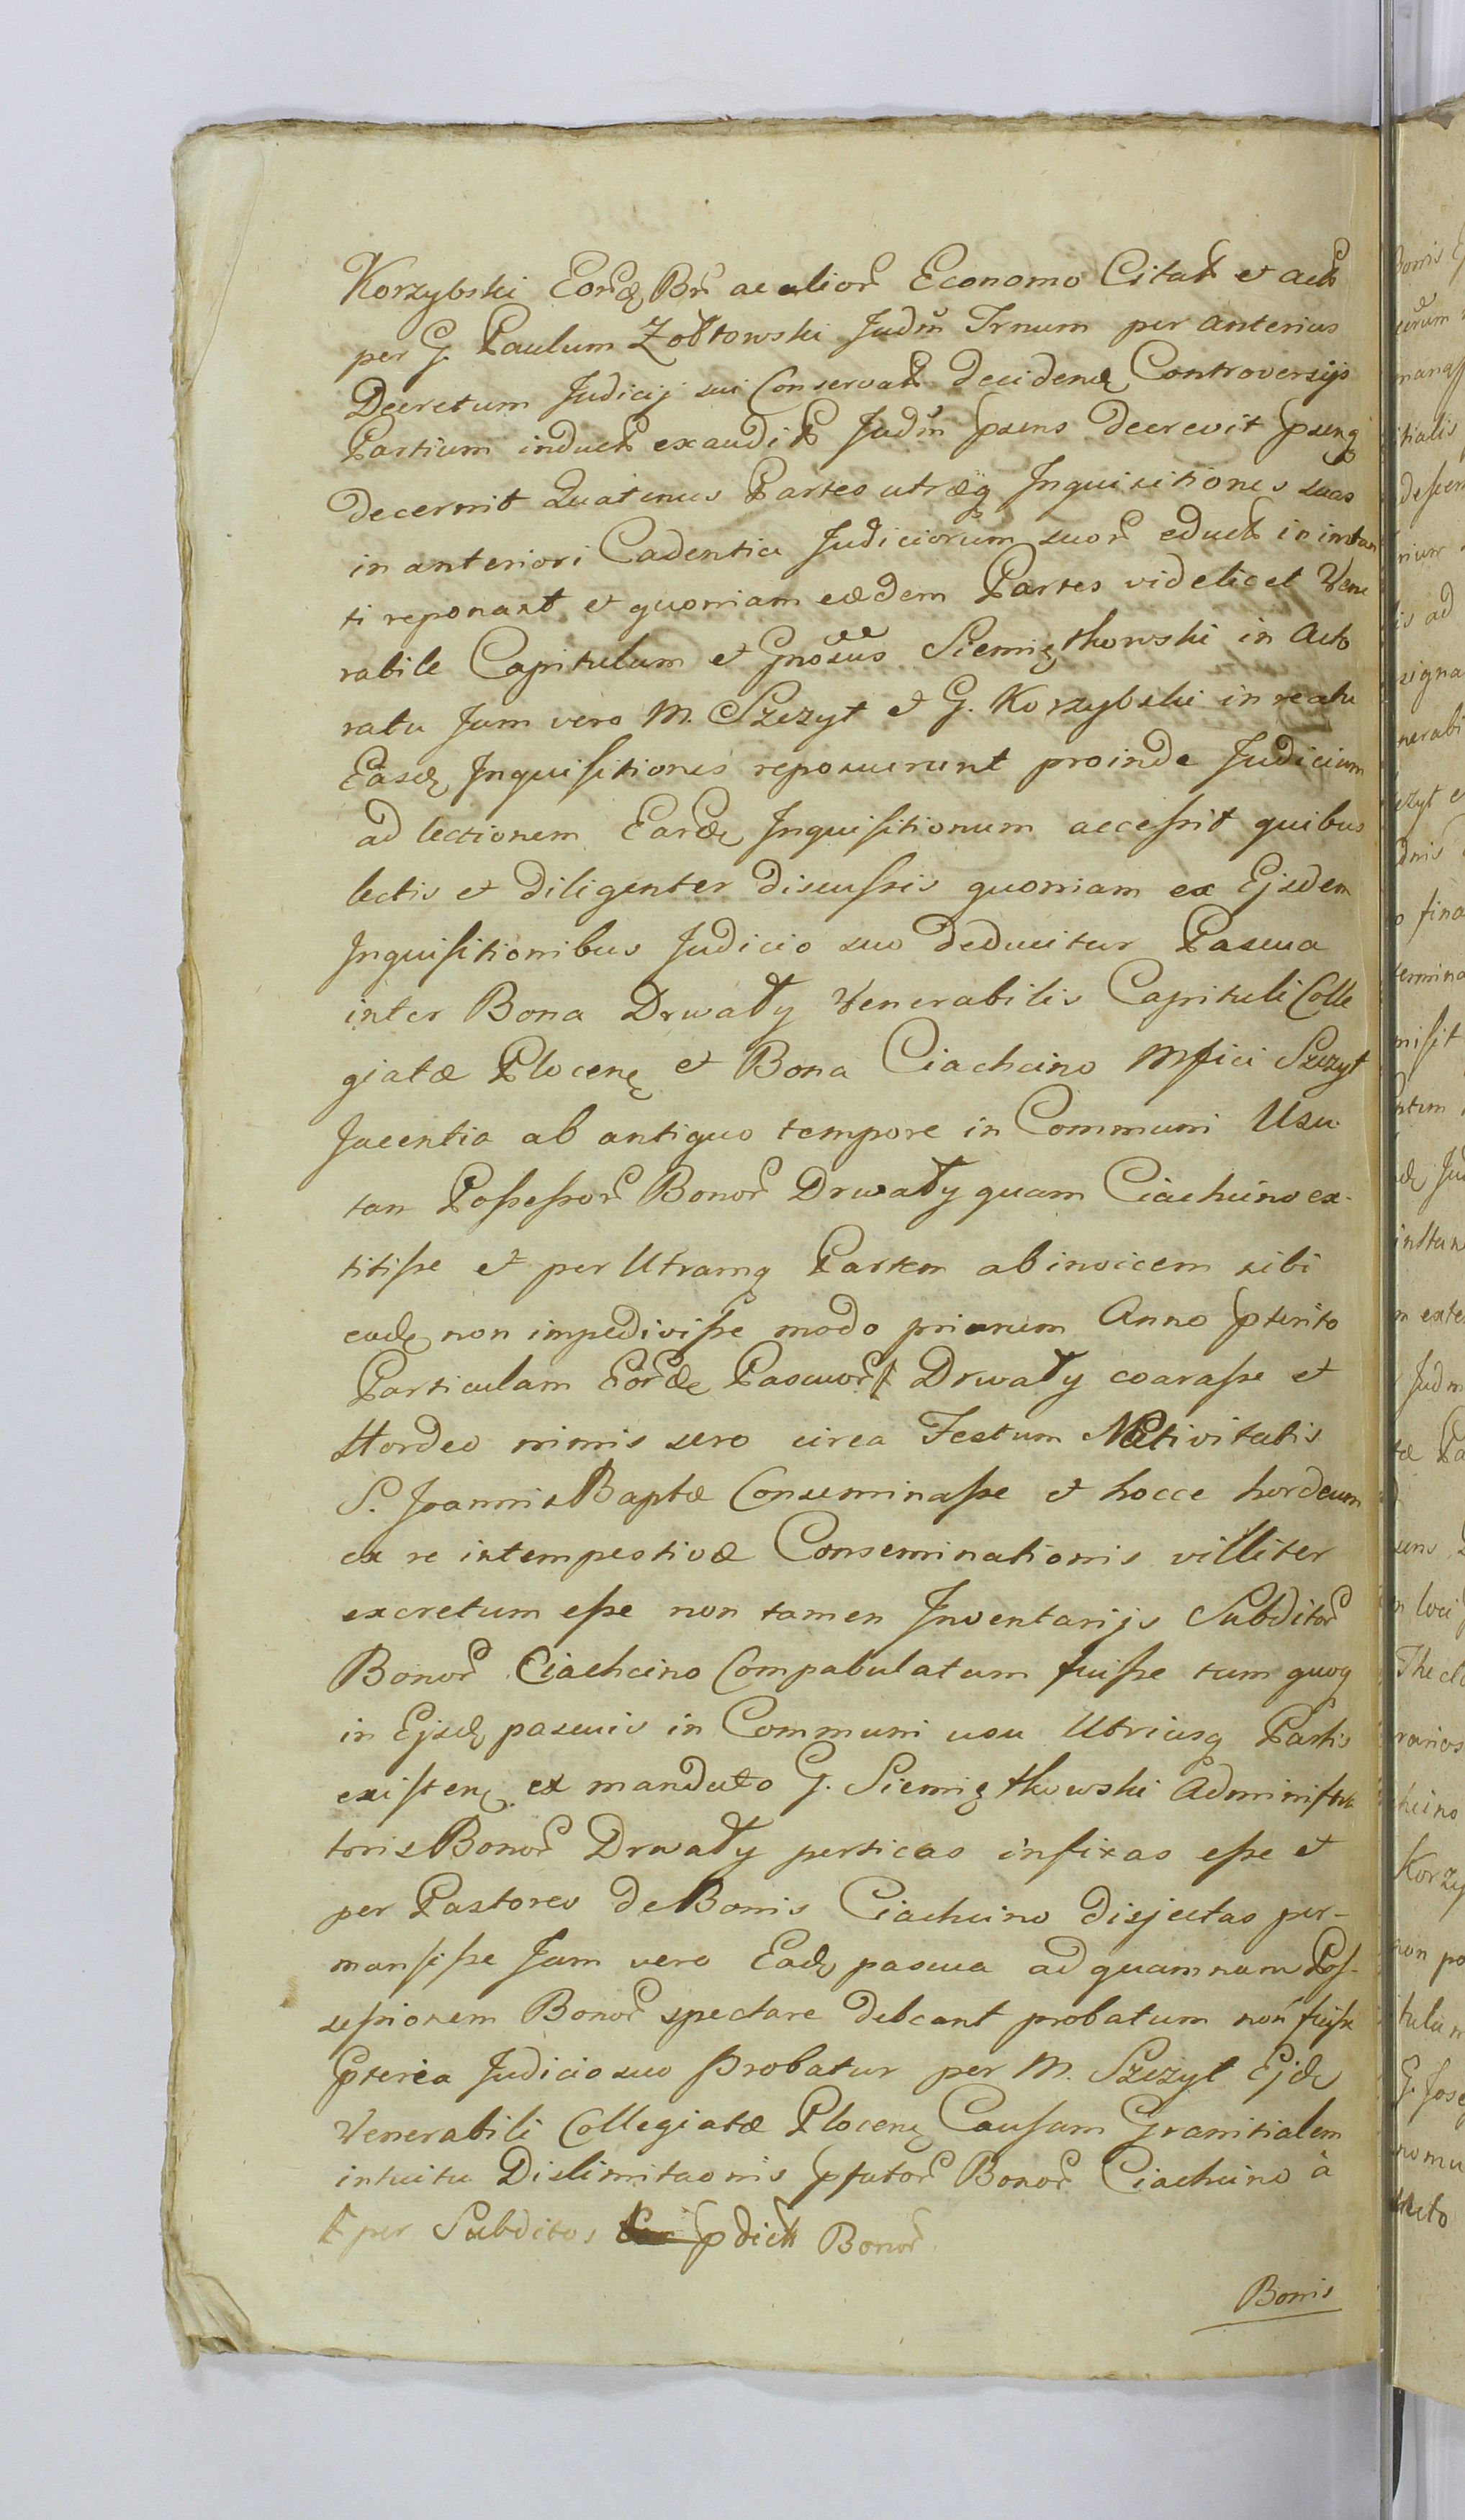 Korzybski Eord Br ac alior Economo Citat et act
per G. Paulum Zołtowski Judm Trnum per anterius
Decretum Judicij sui Conservat decidend Controversijs
Partium induct exaudit Judm psens decrevit psensq
decernit Quatenus Partes utræq Inquisitiones suas
in anteriori Cadentia Judiciorum suor educt in instan
ti reponant et quoniam eædem Partes videlicet Vene
rabile Capitulum et Gnosus Siemiątkowski in Acto
ratu Jam vero M. Szczyt et G. Korzybski in reatu
Easd Inquisitiones reposuerunt proinde Judicium
ad lectionem Eard Inquisitionum accessit quibus
lectis et diligenter discussis quoniam ex Ejsdem
Inquisitionibus Judicio suo deducitur Pascua
inter Bona Drwały Venerabilis Capituli Colle
giatæ Plocen et Bona Ciachcino Mfici Szczyt
Jacentia ab antiquo tempore in Communi Usu
tan Possessor Bonor Drwały quam Ciachcino ex-
titisse et per Utramq Partem ab invicem sibi
ead non impedivisse modo priorum Anno pterito
Particulam Eord Pascuor ⸸ Drwały coarasse et
Hordeo nimis sero circa Festum Nativitatis
S. Joannis Baptæ Conseminasse et hocce hordeum
ex re intempestivæ Conseminationis villiter
excretum esse non tamen Inventarijs Subditor
Bonor Ciachcino Compabulatum fuisse tum quoq
in Ejsd pascuis in Communi usu Utriusq Partis
existen ex mandato G. Siemiątkowski Administra
toris Bonor Drwały perticas infixas esse et
per Pastores de Bonis Ciachcino disjectas per-
mansisse Jam vero Ead pascua ad quamnam Pos-
sessionem Bonor spectare debeant probatum non fuisse
pterea Judicio suo probatur per M. Szczyt Ejd
Venerabili Collegiatæ Plocen Causam Granitialem
intuitu Dislimitaonis pfator Bonor Ciachcino à
⸸ per Subditos pdict Bonor
Bonis